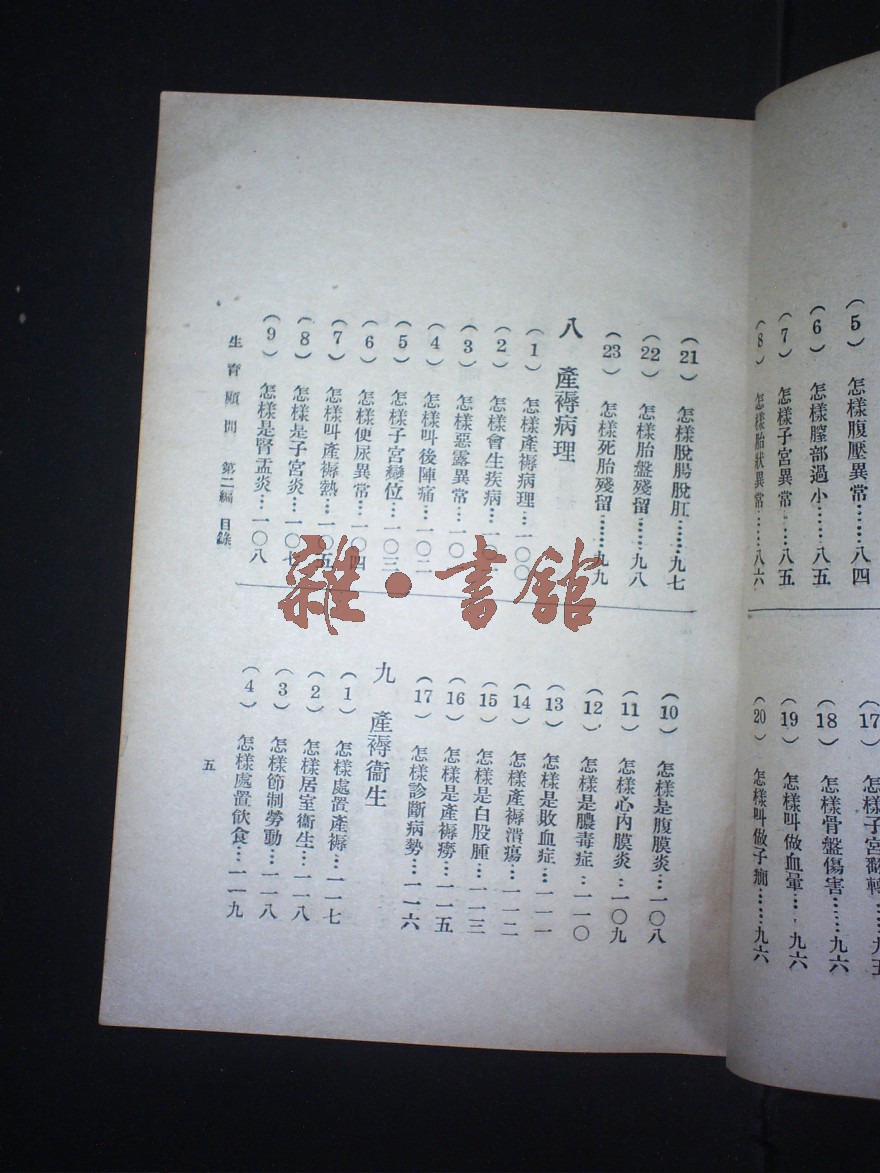 (5) 怎樣腹壓異常……八四
(6) 怎樣膣部過小……八五
(7) 怎樣子宮異常……八五
(8) 怎樣胎狀異常……八六
(17) 怎樣子宮翻轉……九五
(18) 怎樣骨盤傷害……九六
(19) 怎樣叫做血暈……九六
(20) 怎樣叫做子癇……九六
(21) 怎樣脫腸脫肛……九七
(22) 怎樣胎盤殘留……九八
(23) 怎樣死胎殘留……九九
八 產褥病理
(1) 怎樣產褥病理…一〇〇
(2) 怎樣會生疾病…一〇
(3) 怎樣惡露異常…一〇
(4) 怎樣叫後陣痛…一〇二
(5) 怎樣子宮變位…一〇三
(6) 怎樣便尿異常…一〇四
(7) 怎樣叫產褥熱…一〇五
(8) 怎樣是子宮炎…一〇七
(9) 怎樣是腎盂炎…一〇八
(10) 怎樣是腹膜炎…一〇八
(11) 怎樣心內膜炎…一〇九
(12) 怎樣是膿毒症…一一〇
(13) 怎樣是敗血症…一一一
(14) 怎樣產褥潰瘍…一一二
(15) 怎樣是白股腫…一一三
(16) 怎樣是產褥癆…一一五
(17) 怎樣診斷病勢…一一六
九 產褥衞生
(1) 怎樣處置產褥…一一七
(2) 怎樣居室衞生…一一八
(3) 怎樣節制勞動…一一八
(4) 怎樣處置飲食…一一九
生育顧問 第二編 目錄
五
雜·書館